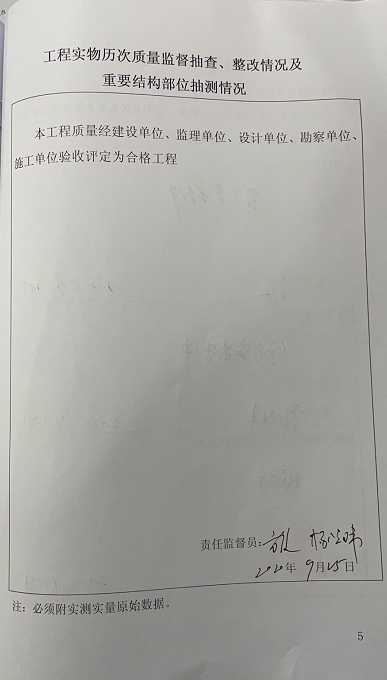 工程实物历次质量监督抽查、整改情况及
重要结构部位抽测情况
本工程质量经建设单位、监理单位、设计单位、勘察单位、
施工单位验收评定为合格工程
责任监督员：
2020年 9月25日
注：必须附实测实量原始数据。
5